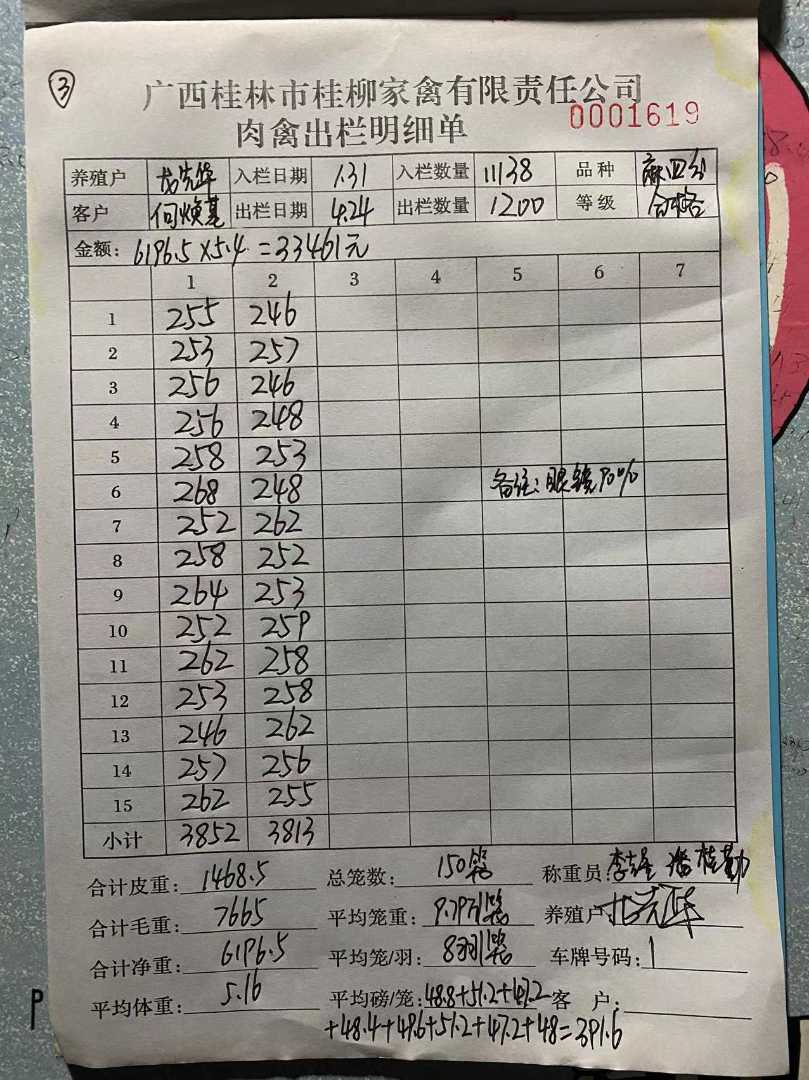 ③
广西桂林市桂柳家禽有限责任公司
肉禽出栏明细单 0001619
养殖户 龙先华 入栏日期 1.31 入栏数量 11138 品种 麻四分
客户 何焕基 出栏日期 4.24 出栏数量 1200 等级 合格
金额: 6196.5×5.4=33461元
1 2 3 4 5 6 7
1 255 246
2 253 257
3 256 246
4 256 248
5 258 253
6 268 248 备注:眼镜90%
7 252 262
8 258 252
9 264 253
10 252 259
11 262 258
12 253 258
13 246 262
14 257 256
15 262 255
小计 3852 3813
合计皮重: 1468.5 总笼数: 150笼 称重员:
合计毛重: 7665 平均笼重: 9.79斤/笼 养殖户:
合计净重: 6196.5 平均笼/羽: 8羽/笼 车牌号码: 1
平均体重: 5.16 平均磅/笼: 48.8+51.2+47.2 客户:
+48.4+49.6+51.2+47.2+48=391.6
P